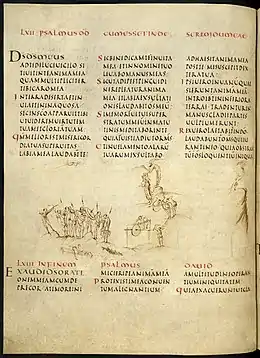 LXII PSALMUS DD CUM ESSET IN DE SERTO IDUMEAE
DSDSMEUS
ADTEDELUCEUIGILO SI
TIUITINTEANIMAMEA
QUAMMULTIPLICITER
TIBICAROMEA
INTERRADESERTAETIN
UIAETINAQUOSA
SICINSCOAPPARUITIBI
UTUIDEREMUIRTUTEM
TUAMETGLORIAMTUAM
QMMELIORESTMISERICOR
DIATUASUPERUITAS
LABIAMEALAUDABUNTTE
SICBENEDICAMTEINUITA
MEAETINNOMINETUO
LEUABOMANUSMEAS
SICUTADIPEETPINGUE
DINEREPLEATURANIMA
MEAETLABIAEXSULTATI
ONISLAUDABITOSMEU
SIMEMORFUITUISUPER
STRATUMMEUMINMATU
TINISMEDITABORINTE
QUIAFUISTIADIUTORMS
ETINUELAMENTOALARU
TUARUMEXSULTABO
ADHAESITANIMAMEA
POSTTEMESUSCEPITDEX
TERATUA
IPSIUEROINUANUMQUAE
SIERUNTANIMAMEAM
INTROIBUNTININFERIORA
TERRAETRADENTURIN
MANUSGLADIIPARTES
UULPIUMERUNT
REXUEROLAETABITURINDO
LAUDABUNTUROMSQUI
IURANTINEOQUIAOBSTRUC
TUMESTOSLOQUENTIUMINIQUA
LXIII INFINEM PSALMUS DAUID
EXAUDIDSORATI
ONEMMEAMCUMDE
PRECOR ATIMOREINI
MICIERIPEANIMAMEA
PROTEXISTIMEACONUEN
TUMALIGNANTIUM
AMULTITUDINEOPERAN
TIUMINIQUITATEM
QUIAEXACUERUNTUTGLA